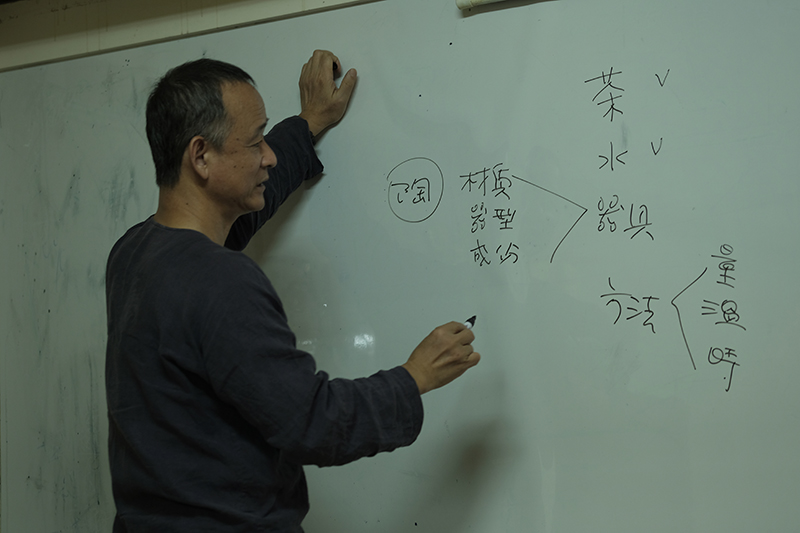 茶 v
水 v
陶 材质 器具
器型
成分
方法 量
温
時